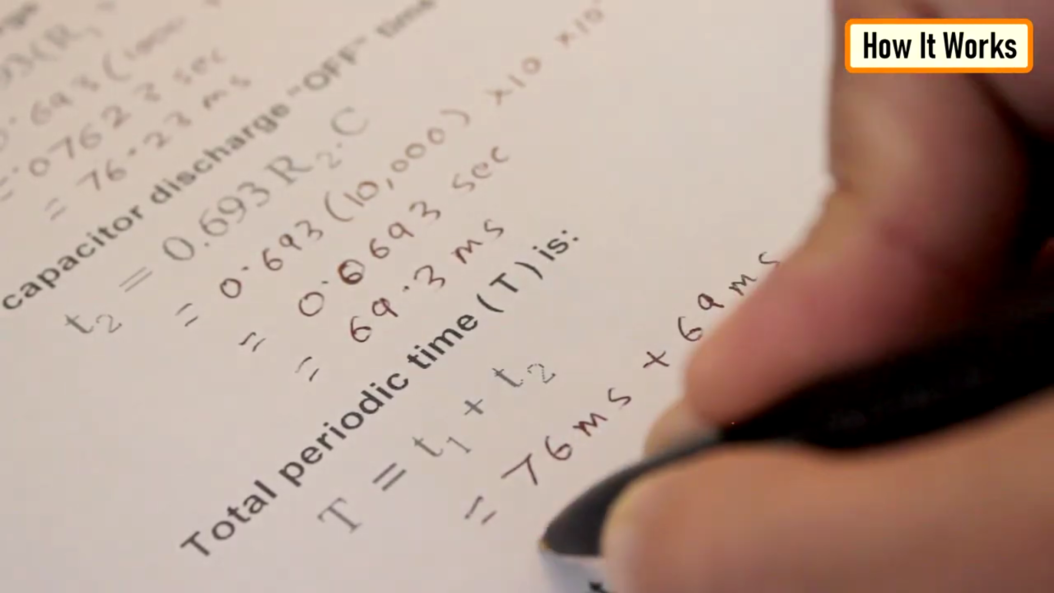 How It Works
0.693 (
= .07623 sec
= 76.23 ms
capacitor discharge "OFF" time
t₂ = 0.693 R₂.C
= 0.693 (10,000) ×10 ×10
= 0.0693 sec
= 69.3 ms
Total periodic time (T) is:
T = t₁ + t₂
= 76ms + 69ms